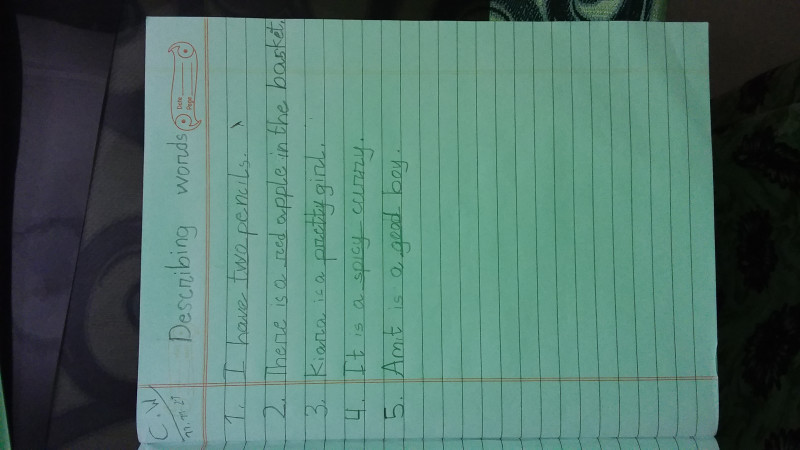 C.W
Describing words
Date
Page
1. I have two pencils.
2. There is a red apple in the basket.
3. Kiara is a pretty girl.
4. It is a spicy curry.
5. Amit is a good boy.